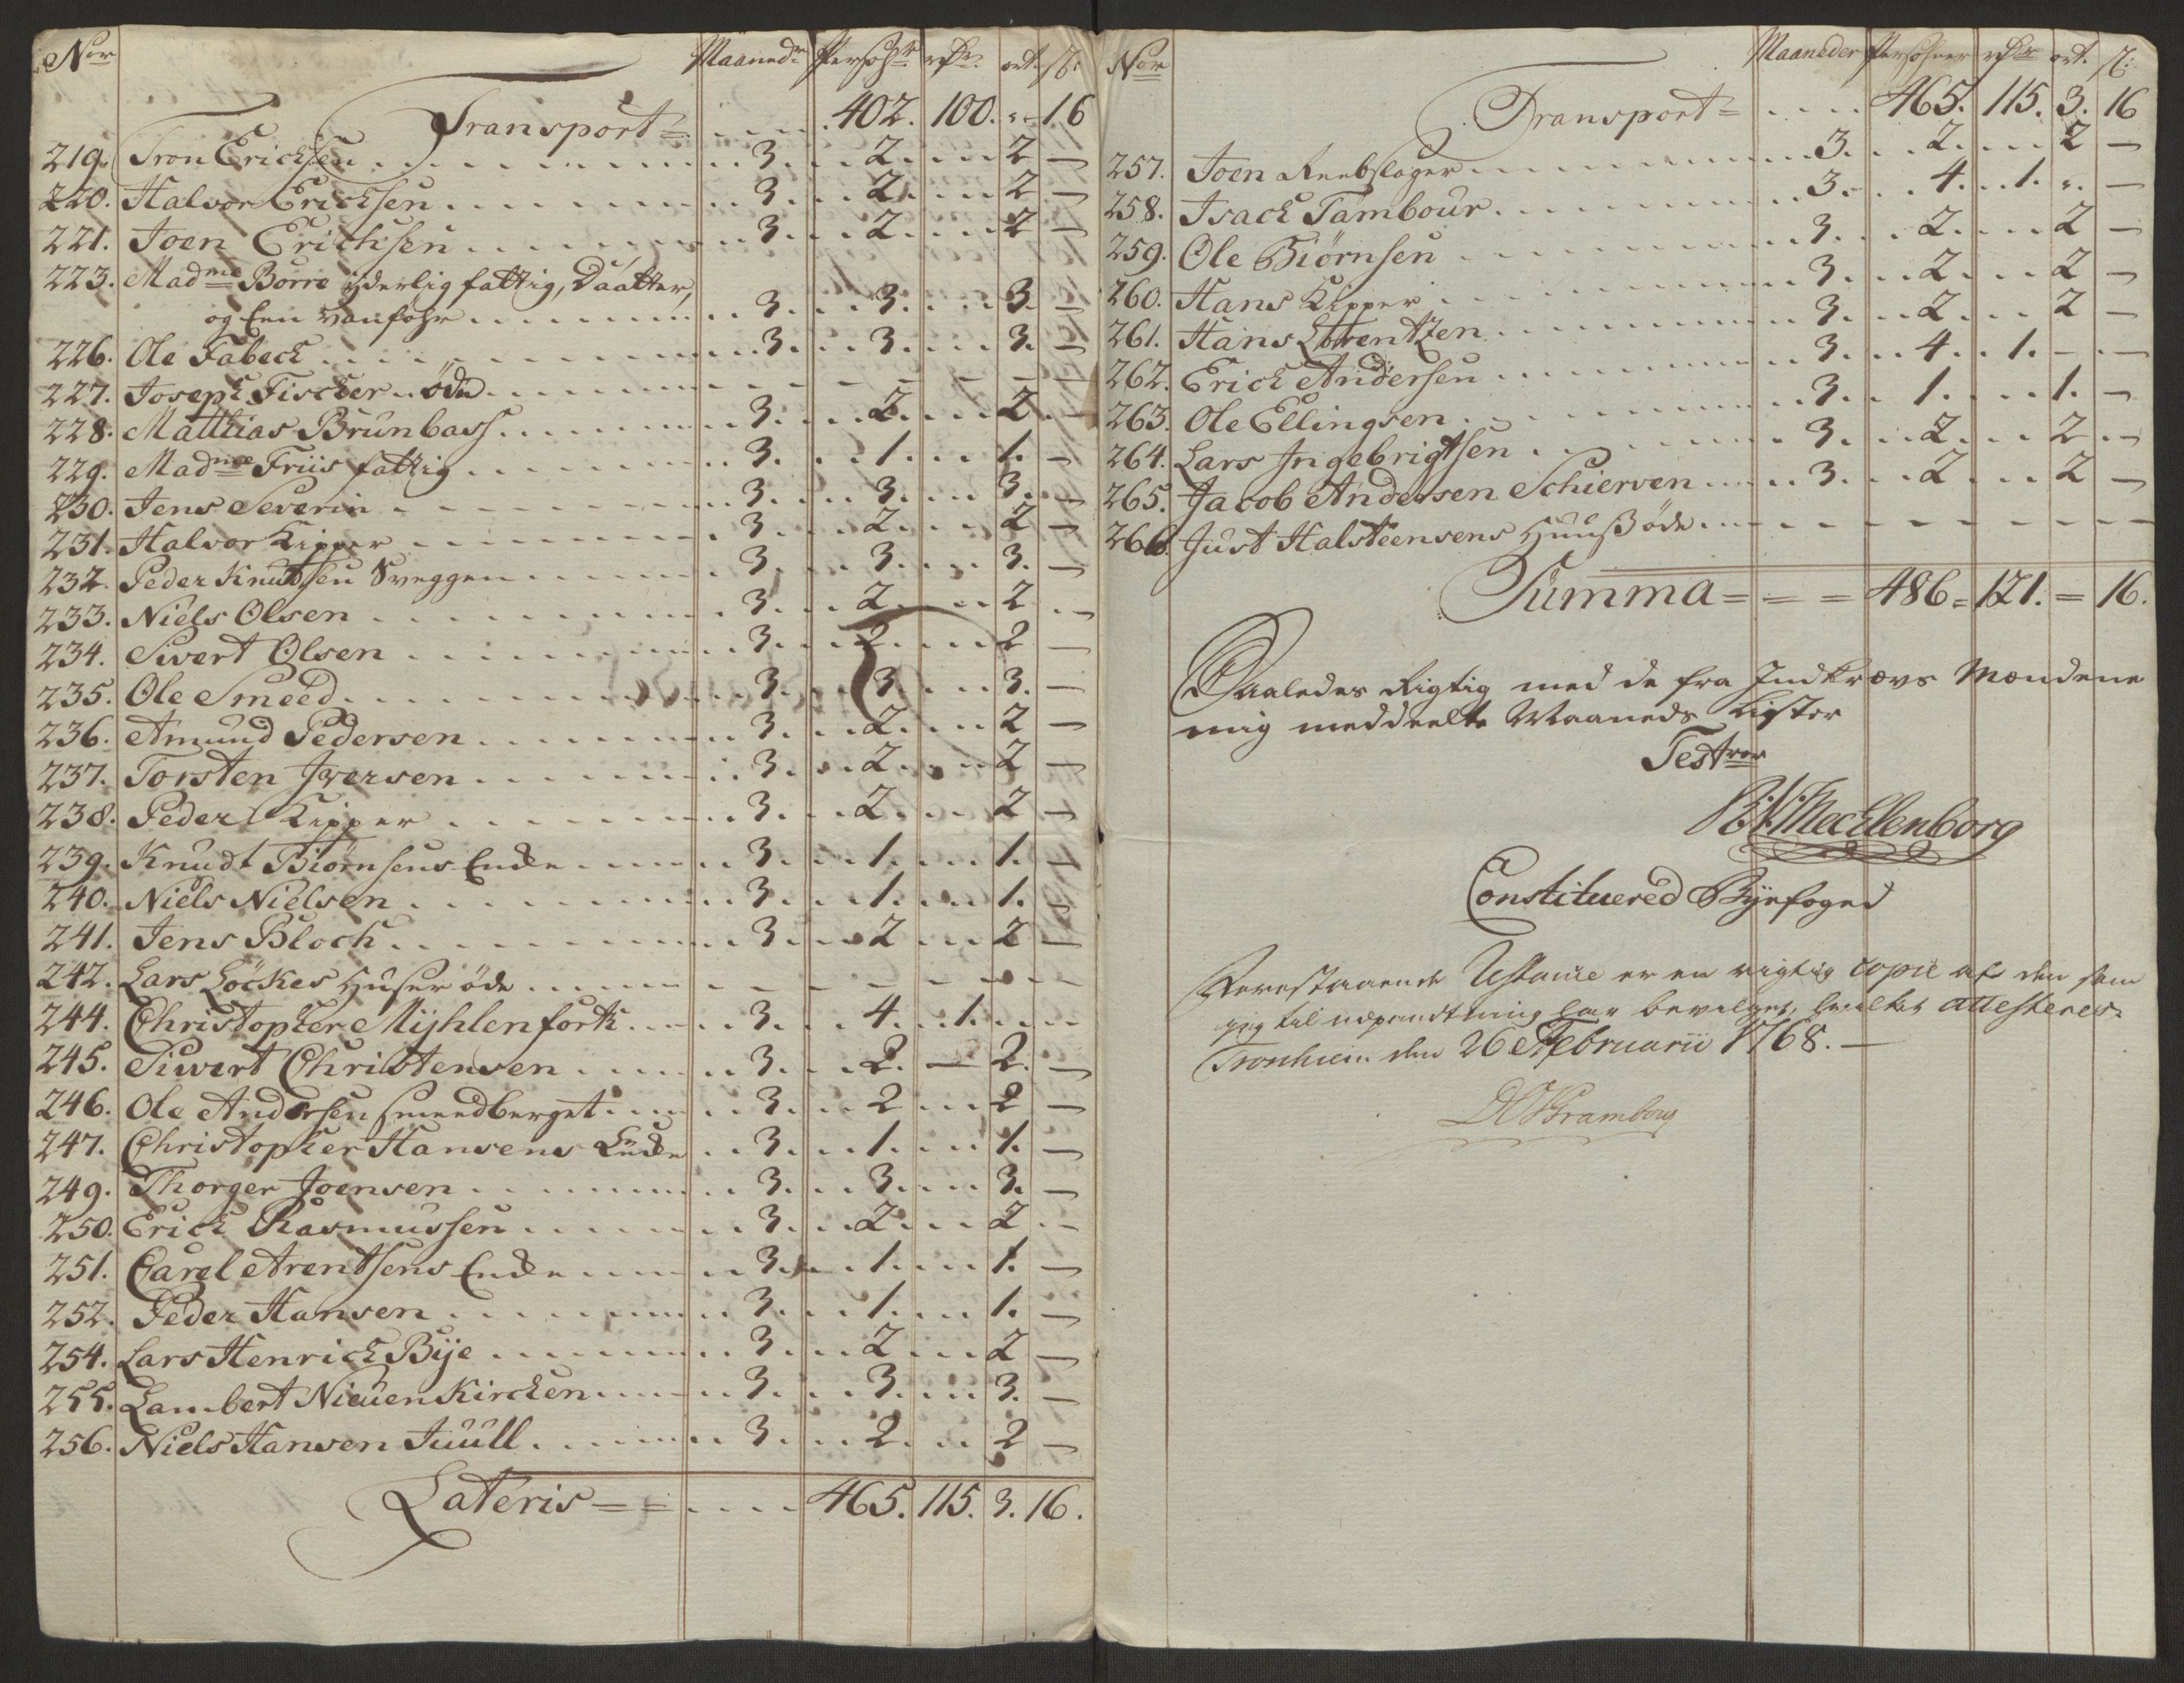 Nor Maaned: Persohr rdr ort. s:
Transport = 402. 100. " 16
219. Tron Erichsen 3. 2. 2 —
220. Halvor Erichsen 3. 2. 2 —
221. Joen Erichsen 3. 2. 2 —
223. Madme Borre yderlig fattig, Daatter,
og Een vanføhr 3. 3. 3. —
226. Ole Fabeck 3. 3. 3. —
227. Joseph Fischer öde — — — —
228. Matthias Brunbass 3. 2. 2. —
229. Madme Friis fattig 3. 1. 1. —
230. Jens Severin 3. 3. 3. —
231. Halvor Kipper 3. 2. 2 —
232. Peder Knudsen Sveggen 3. 3. 3. —
233. Niels Olsen 3. 2. 2 —
234. Sivert Olsen 3. 2. 2 —
235. Ole Smeed 3. 3. 3. —
236. Amund Pedersen 3. 2. 2 —
237. Torsten Iversen 3. 2. 2 —
238. Peder Kipper 3. 2. 2 —
239. Knudt Biörnsens Enke 3. 1. 1. —
240. Niels Nielsen 3. 1. 1. —
241. Jens Bloch 3. 2 2 —
242. Lars Löckes Huser öde — — — —
244. Christopher Mijhlenforth 3. 4. 1. — —
245. Siwert Christensen 3. 2. — 2. —
246. Ole Andersen smeedberget 3. 2 2 —
247. Christopher Hansens Enke 3. 1. 1. —
249. Thorger Joensen 3. 3. 3. —
250. Erick Rasmussen 3. 2. 2 —
251. Carel Arentsens Enke 3. 1. 1. —
252. Peder Hansen 3. 1. 1. —
254. Lars Henrick Bije 3. 2 2 —
255. Lambert Nieuenkirchen 3. 3. 3. —
256. Niels Hansen Juull 3. 2. 2 —
Lateris = = 465. 115. 3. 16.
Nor Maaneder Persohner rdr ort. s:
Transport = 465. 115. 3. 16
257. Joen Reebslager 3. 2. 2 —
258. Isack Tambour 3. 4. 1. " —
259. Ole Biörnsen 3. 2. 2 —
260. Hans Kipper 3. 2. 2 —
261. Hans Lorentzen 3. 2. 2 —
262. Erick Andersen 3. 4. 1. — —
263. Ole Ellingsen 3. 1. 1. —
264. Lars Ingebrigtsen 3. 2. 2 —
265. Jacob Andersen Schierven 3. 2 2 —
266. Just Halsteensens Huuß öde — — — —
Summa = = = 486 = 121. = 16.
Saaledes Rigtig med de fra Indkrævs Mændene
mig meddeelte Maaneds Lister
Testrer
Mecklenborg
Constituered Byefoged
Forestaaende er en rigtig copie af den som
jeg til udpandtning har bevilget, hvilket attesteres.
Tronhiem den 26 Februarii 1768. —